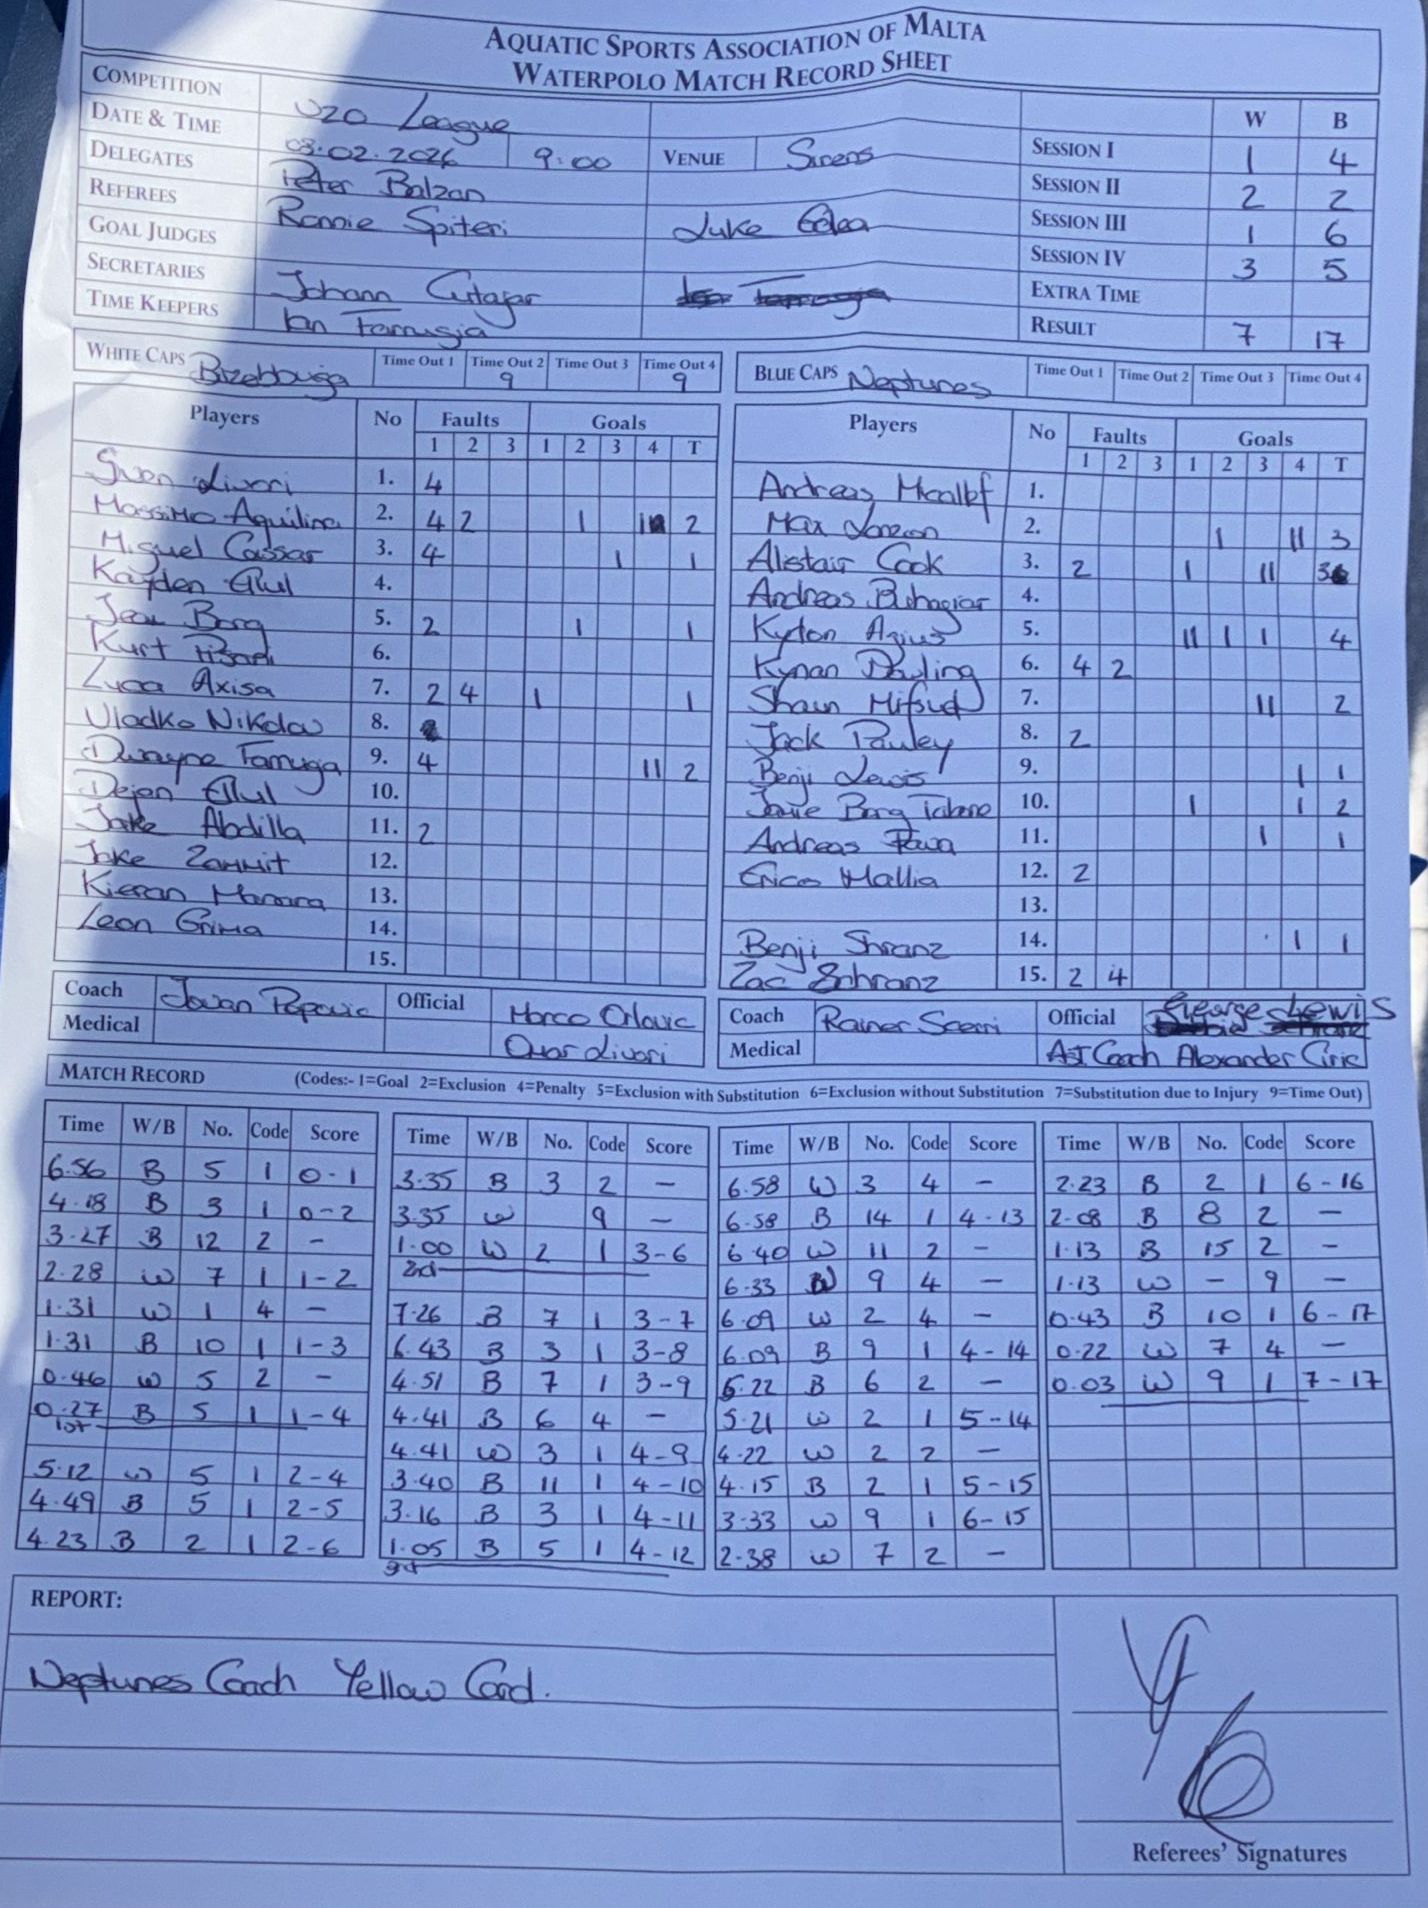 AQUATIC SPORTS ASSOCIATION OF MALTA
WATERPOLO MATCH RECORD SHEET
COMPETITION U20 League W B
DATE & TIME 03.02.2026 9:00 VENUE Sirens SESSION I 1 4
DELEGATES Peter Balzan SESSION II 2 2
REFEREES Ronnie Spiteri Luke SESSION III 1 6
GOAL JUDGES SESSION IV 3 5
SECRETARIES Johann Cutajar EXTRA TIME
TIME KEEPERS Ian Farrugia RESULT 7 17
WHITE CAPS Bzebbuga Time Out 1 Time Out 2 9 Time Out 3 Time Out 4 9
BLUE CAPS Neptunes Time Out 1 Time Out 2 Time Out 3 Time Out 4
Players No Faults Goals
1 2 3 1 2 3 4 T
Sven Livori 1. 4
Massimo Aquilina 2. 4 2 1 1 2
Miguel Cassar 3. 4 1 1
Kayden Ellul 4.
Jean Borg 5. 2 1 1
Kurt 6.
Luca Axisa 7. 2 4 1 1
Vladko Nikolov 8.
Dwayne Farruga 9. 4 11 2
Dejan Ellul 10.
Jake Abdilla 11. 2
Jake Zammit 12.
Kieran 13.
Leon Grima 14.
15.
Coach Jovan Popovic Official Marco Orlovic
Medical Livori
Players No Faults Goals
1 2 3 1 2 3 4 T
Andreas 1.
Max 2. 1 11 3
Alistair Cook 3. 2 1 11 3
Andreas Buhagiar 4.
Kylon Agius 5. 11 1 1 4
Kynan Dowling 6. 4 2
Shaun Mifsud 7. 11 2
Jack Pauley 8. 2
Benji Lewis 9. 1 1
Jamie Borg 10. 1 1 2
Andreas 11. 1 1
Erica Mallia 12. 2
13.
Benji Shranz 14. 1 1
Zac Schranz 15. 2 4
Coach Rainer Scerri Official George Lewis
Medical Ast Coach Alexander Ciric
MATCH RECORD (Codes:- 1=Goal 2=Exclusion 4=Penalty 5=Exclusion with Substitution 6=Exclusion without Substitution 7=Substitution due to Injury 9=Time Out)
Time W/B No. Code Score
6.56 B 5 1 0-1
4.18 B 3 1 0-2
3.27 B 12 2 -
2.28 W 7 1 1-2
1.31 W 1 4 -
1.31 B 10 1 1-3
0.46 W 5 2 -
0.27 B 5 1 1-4
1st
5.12 W 5 1 2-4
4.49 B 5 1 2-5
4.23 B 2 1 2-6
Time W/B No. Code Score
3.35 B 3 2 -
3.35 W 9 -
1.00 W 2 1 3-6
2nd
7.26 B 7 1 3-7
6.43 B 3 1 3-8
4.51 B 7 1 3-9
4.41 B 6 4 -
4.41 W 3 1 4-9
3.40 B 11 1 4-10
3.16 B 3 1 4-11
1.05 B 5 1 4-12
Time W/B No. Code Score
6.58 W 3 4 -
6.58 B 14 1 4-13
6.40 W 11 2 -
6.33 W 9 4 -
6.09 W 2 4 -
6.09 B 9 1 4-14
5.22 B 6 2 -
5.21 W 2 1 5-14
4.22 W 2 2 -
4.15 B 2 1 5-15
3.33 W 9 1 6-15
2.38 W 7 2 -
Time W/B No. Code Score
2.23 B 2 1 6-16
2.08 B 8 2 -
1.13 B 15 2 -
1.13 W - 9 -
0.43 B 10 1 6-17
0.22 W 7 4 -
0.03 W 9 1 7-17
REPORT:
Neptunes Coach Yellow Card.
Referees' Signatures